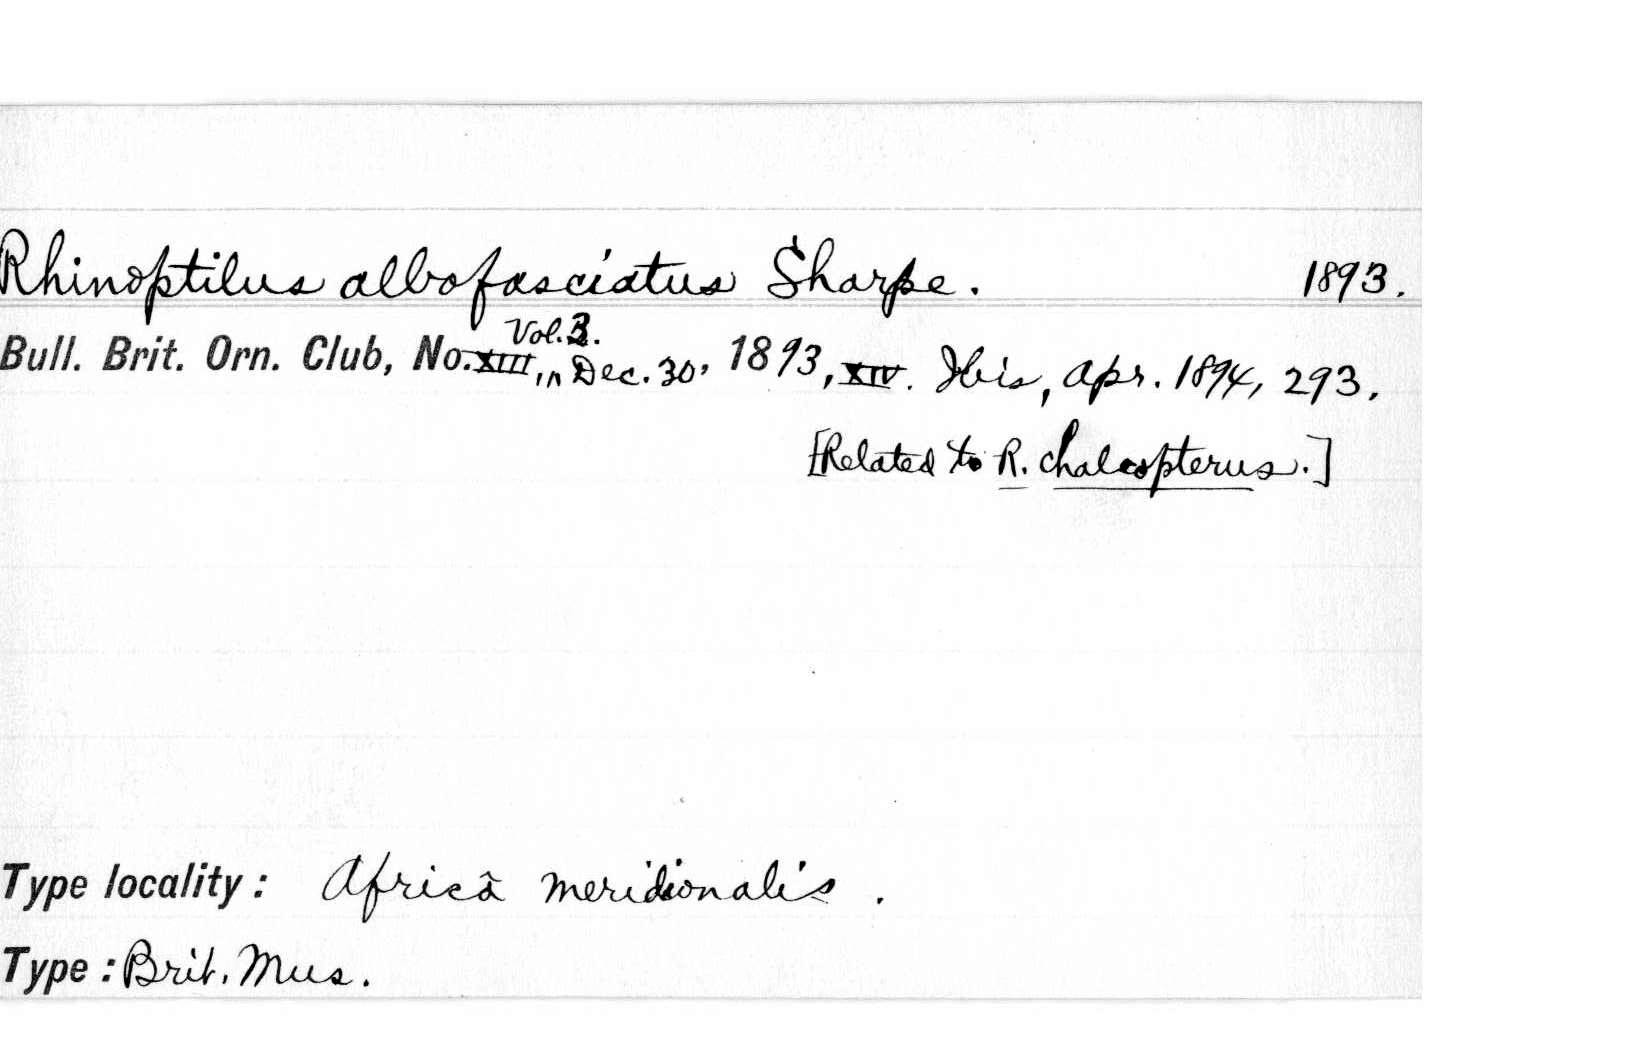 Rhinoptilus albofasciatus Sharpe. 1893.
Vol. 3.
Bull. Brit. Orn. Club, No. XIII, in Dec. 30, 1893, XIV. Ibis, Apr. 1894, 293.
[Related to R. chalcopterus.]
Type locality: Africâ meridionalis.
Type: Brit. Mus.